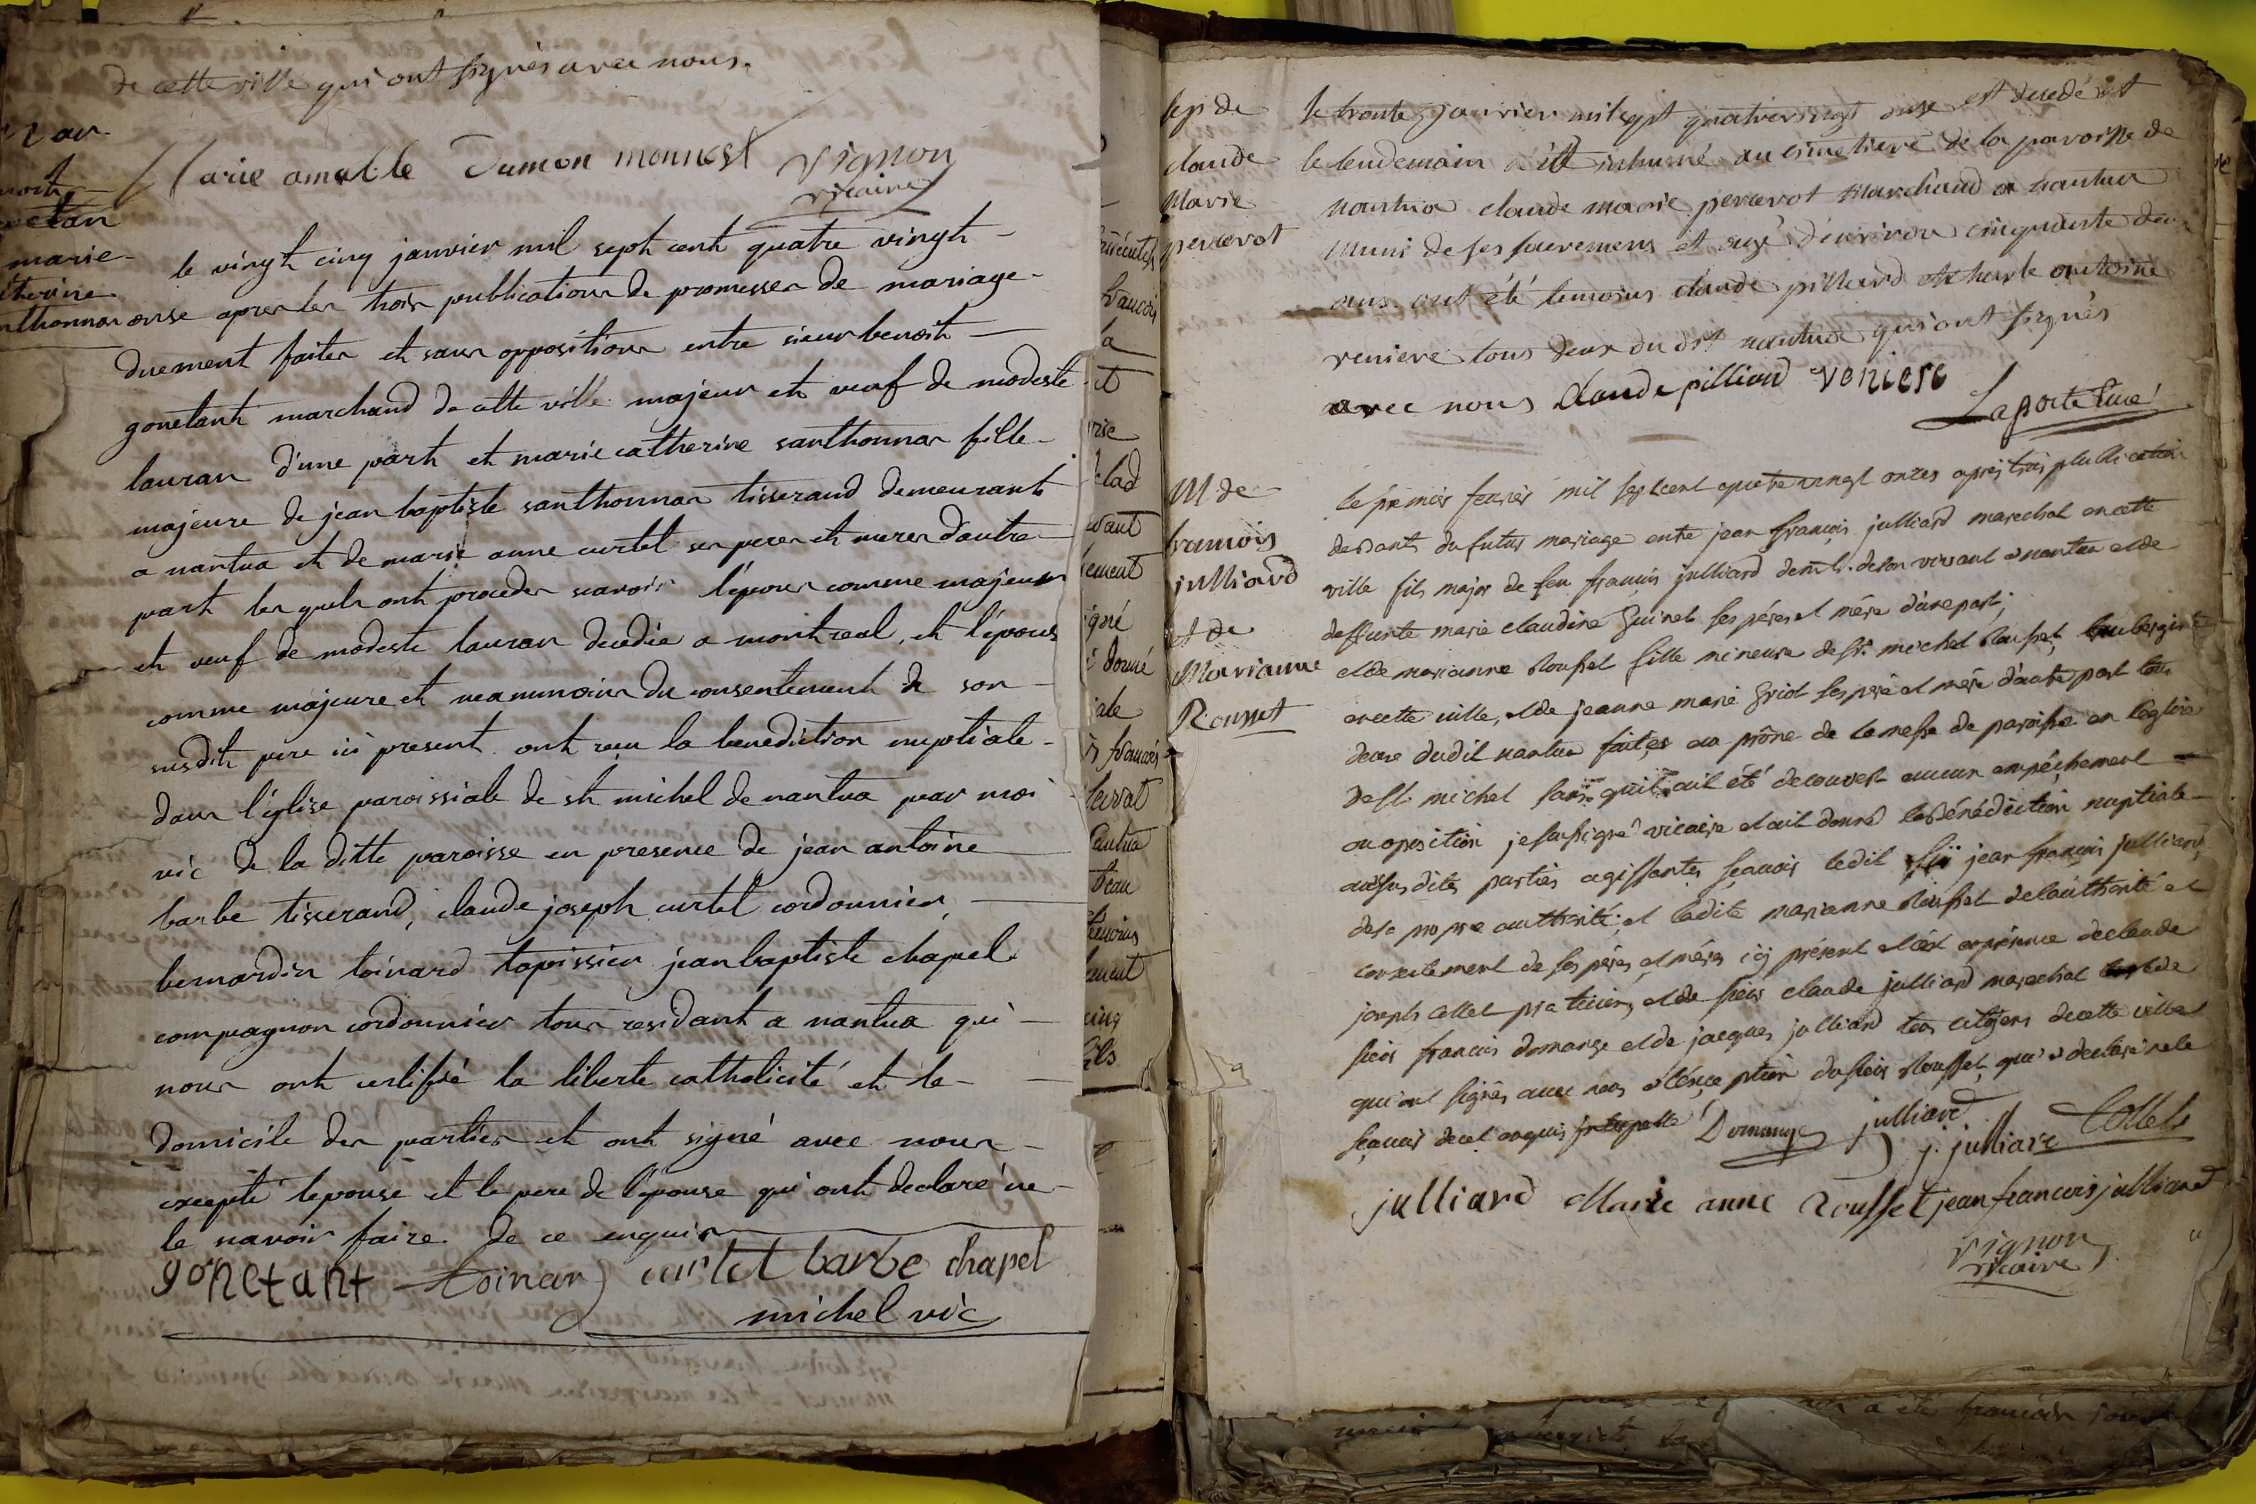 de cette ville qui ont signés avec nous.
Marie amable Dumon monnest vignon
vicaire
mar
marie
therine
santhonnax
le vingt cinq janvier mil sept cent quatre vingt
onse apres les trois publications de promesses de mariage
duement faites et sans oppositions entre sieur benoit
gonetant marchand de cette ville majeur et veuf de modeste
lauran d'une part et marie catherine santhonnax fille
majeure de jean baptiste santhonnax tisserand demeurant
a nantua et de marie anne curtet ses peres et meres d'autre
part les quels ont proceder scavoir l'epoux comme majeur
et veuf de modeste lauran decedée a montreal, et l'épouse
comme majeure et neanmoins du consentement de son
susdit pere ici present ont reçu la benediction nuptiale
dans l'église paroissiale de st michel de nantua par moi
vic de la ditte paroisse en presence de jean antoine
barbe tisserand, claude joseph curtet cordonnier,
bernardin toinard tapissier jean baptiste chapel
compagnon cordonnier tous residant a nantua qui
nous ont certifié la liberte catholicité et le
domicile des parties et ont signé avec nous
excepté l'epouse et le pere de l'épouse qui ont declaré ne
le savoir faire de ce enquis
gonetant toinard curtet barbe chapel
michel vic
francois
la
et
rie
vaut
ement
igné
donné
iale
francois
nantua
temoins
cinq
fils
sep de
claude
Marie
percerot
le trante janvier mil sept quatrevingt onse est decedé et
le lendemain a été inhumé au cimetiere de la paroisse de
nantua claude marie percerot marchand a nantua
muni de ses sacremens et agé d'environ cinquante deux
ans ont été temoins claude pilliard et charle antoine
reniere tous deux du dit nantua qui ont signés
avec nous Claude pilliard reniere
Laporte Curé
M de
francois
julliard
et de
Marianne
Rousset
Le premier fevrier mil sept cent quatre vingt onzes après trois publication
des dants du futur mariage entre jean françois julliard marechal en cette
ville fils major de feu françois julliard de son vivant a nantua et de
deffunte marie claudine Guinet ses pères et mère d'une part;
et de marianne Rousset fille mineure de sr. michel Rousset aubergiste
en cette ville, et de jeanne marie Griot ses père et mère d'autre part tous
deux dudit nantua faites au prône de la messe de paroisse en l'église
de st michel sans qu'il ait été decouvert aucun empêchement
ou oposition je soussigné vicaire et ait donné la bénédiction nuptiale
aux susdites parties agissantes sçavoir ledit jean françois julliard
de sa propre authorité; et ladite marianne Rousset de l'authorité et
consentement de ses pères et mères icj présent et en présence de claude
joseph Collet praticien, et de sieur claude julliard marechal et de
sieur francois domange et de jacques julliard tous citoyens de cette ville
qui ont signés avec nous a l'exception du sieur Rousset qui a declaré ne le
sçavoir de cet enquis Domange julliard Collet
j. julliard
julliard Marie anne Rousset jean francois julliard
vignon
vicaire